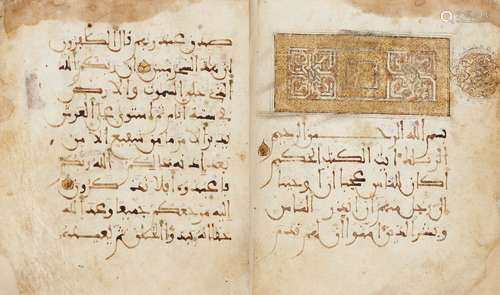 بسم الله الرحمن الرحيم
الر تلك ايت الكتب الحكيم
اكان للناس عجبا ان اوحينا
الى رجل منهم ان انذر الناس
وبشر الذين امنوا ان لهم قدم
صدق عند ربهم قال الكفرون
ان هذا لسحر مبين ان ربكم الله
الذي خلق السموت والارض
في ستة ايام ثم استوى على العرش
يدبر الامر ما من شفيع الا من
بعد اذنه ذلكم الله ربكم
فاعبدوه افلا تذكرون
اليه مرجعكم جميعا وعد الله
حقا انه يبدؤا الخلق ثم يعيده